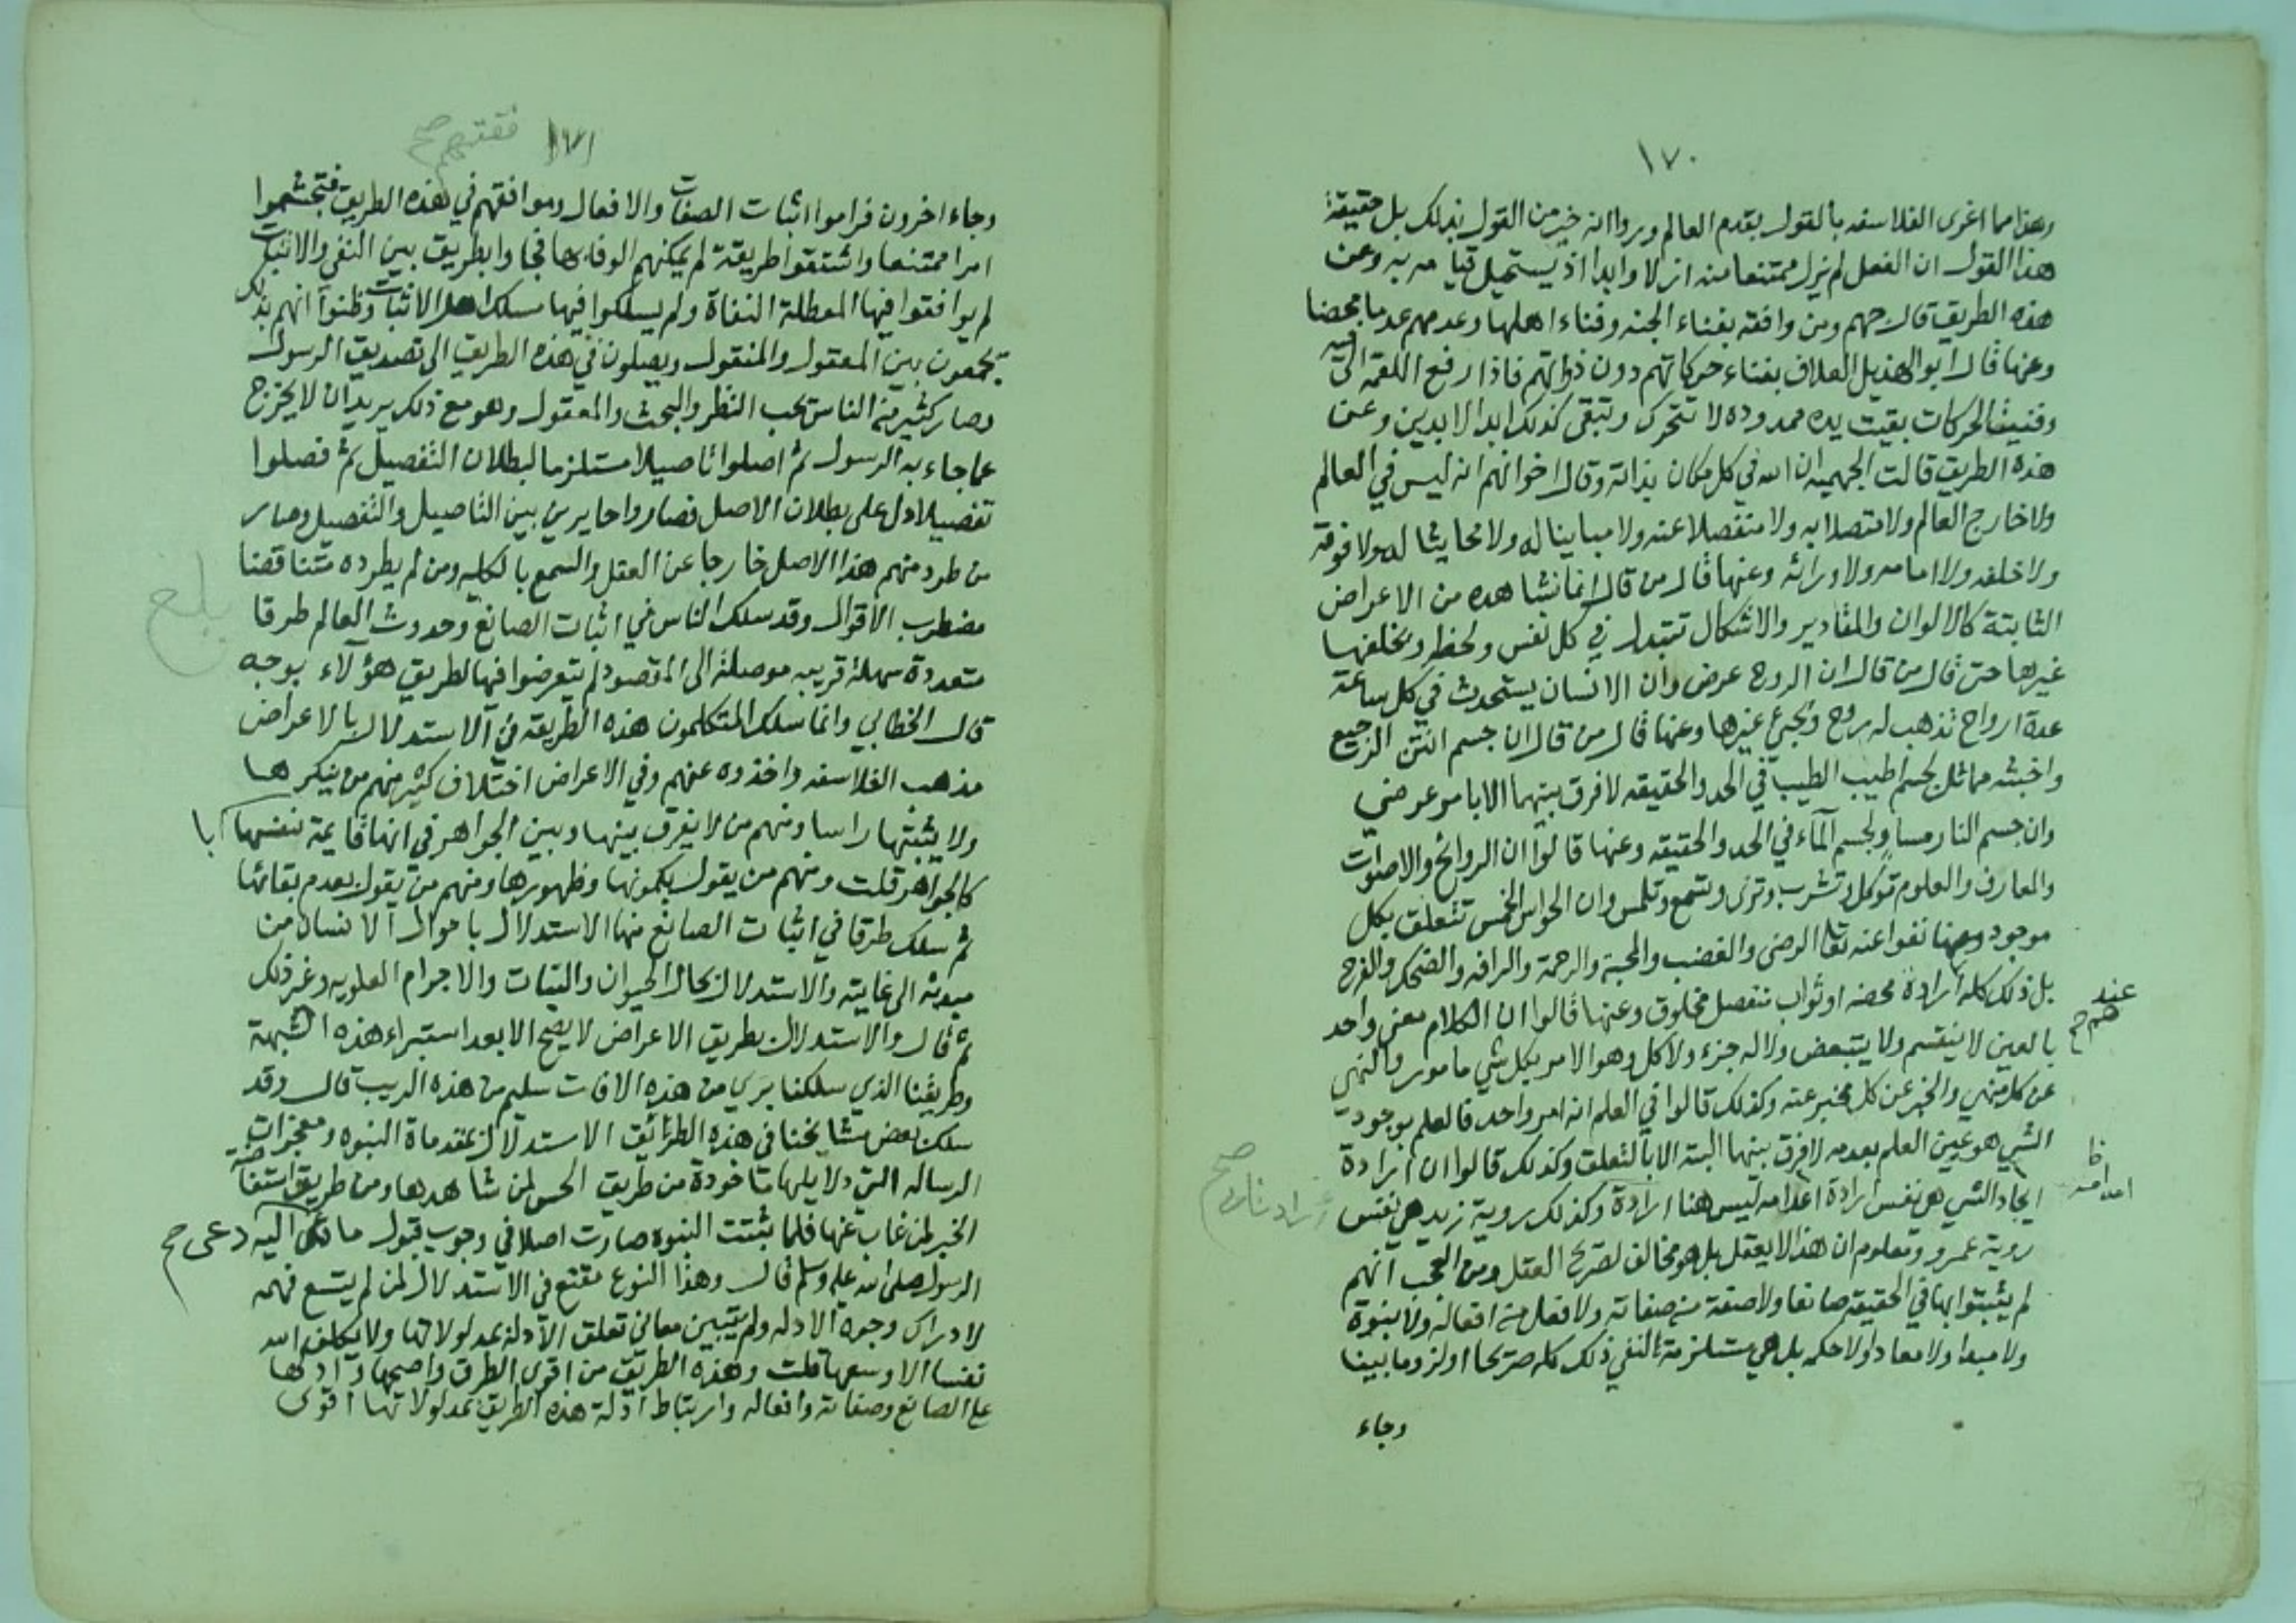 ١٧٠
وهذا مما اغرى الفلاسفه بالقول بقدم العالم وراوا انه خير من القول بذلك بل حقيقة
هذا القول ان الفعل لم يزل ممتنعا منه ازلا وابدا اذ يستحيل قيامه به وعن
هذه الطريق قال جهم ومن وافقه بفناء الجنه وفناء اهلها وعدمهم عدما محضا
وعنها قال ابو الهذيل العلاف بفناء حركاتهم دون ذواتهم فاذا رفع اللقمه الى فيه
وفنيت الحركات بقيت يده ممدوده لا تتحرك وتبقى كذلك ابد الابدين وعن
هذه الطريق قالت الجهميه ان الله في كل مكان بذاته وقال اخوانهم انه ليس في العالم
ولا خارج العالم ولا متصلا به ولا منفصلا عنه ولا مباينا له ولا محايثا له ولا فوقه
ولا خلفه ولا امامه ولا ورائه وعنها قال من قال انما نشاهده من الاعراض
الثابتة كالالوان والمقادير والاشكال تتبدل في كل نفس ولحظه ويخلفها
غيرها حتى قال من قال ان الروح عرض وان الانسان يستحدث في كل ساعة
عدة ارواح تذهب له روح وتجئ غيرها وعنها قال من قال ان جسم انتن الرجيع
واخبثه مماثل لجسم اطيب الطيب في الحد والحقيقه لا فرق بينهما الا بامر عرضي
وان جسم النار مساو لجسم الماء في الحد والحقيقه وعنها قالوا ان الروائح والاصوات
والمعارف والعلوم توكل وتشرب وترى وتسمع وتلمس وان الحواس الخمس تتعلق بكل
موجود وعنها نفوا عنه تعالى الرضى والغضب والمحبة والرحمة والرافه والضحك والفرح
بل ذلك كله ارادة محضه او ثواب منفصل مخلوق وعنها قالوا ان الكلام معنى واحد
عندهم صح
بالعين لا ينقسم ولا يتبعض ولا له جزء ولا كل وهو الامر بكل شي مامور والنهي
عن كل منهي والخبر عن كل مخبر عنه وكذلك قالوا في العلم انه امر واحد فالعلم بوجود
الشي هو عين العلم بعدمه لا فرق بينهما البتة الا بالتعلق وكذلك قالوا ان ارادة
ايجاد الشي هي نفس ارادة اعدامه ليس هنا ارادة وكذلك روية زيد هي نفس
روية عمرو ومعلوم ان هذا لا يعقل بل هو مخالف لصريح العقل ومن العجب انهم
لم يثبتوا بها في الحقيقه صانعا ولا صفة من صفاته ولا فعل من افعاله ولا نبوة
ولا مبدا ولا معادا ولا حكمه بل هي مستلزمة لنفي ذلك كله صريحا او لزوما بينا
وجاء
١٧١
صح
وجاء اخرون فراموا اثبات الصفات والافعال وموافقهم في هذه الطريق فتجشموا
امرا ممتنعا واشتقوا طريقة لم يمكنهم الوفاء بها فجاوا بطريق بين النفي والاثبات
لم يوافقوا فيها المعطلة النفاة ولم يسلكوا فيها مسلك اهل الاثبات وظنوا انهم بذلك
يجمعون بين المعقول والمنقول ويصلون في هذه الطريق الى تصديق الرسول
وصار كثير من الناس يحب النظر والبحث والمعقول وهو مع ذلك يريد ان لا يخرج
عما جاء به الرسول ثم اصلوا تاصيلا مستلزما لبطلان التفصيل ثم فصلوا
تفصيلا دل على بطلان الاصل فصاروا حايرين بين التاصيل والتفصيل وصار
من طرد منهم هذا الاصل خارجا عن العقل والسمع بالكليه ومن لم يطرده متناقضا
بلغ
مضطرب الاقوال وقد سلك الناس في اثبات الصانع وحدوث العالم طرقا
متعددة سهلة قريبه موصلة الى المقصود لم يتعرضوا فيها لطريق هؤلاء بوجه
قال الخطابي وانما سلك المتكلمون هذه الطريقه في الاستدلال بالاعراض
مذهب الفلاسفه واخذوه عنهم وفي الاعراض اختلاف كثير منهم من ينكرها
ولا يثبتها راسا ومنهم من لا يفرق بينها وبين الجواهر في انها قايمة بنفسها
كالجواهر قلت ومنهم من يقول بكمونها وظهورها ومنهم من يقول بعدم بقائها
ثم سلك طرقا في اثبات الصانع منها الاستدلال باحوال الانسان من
مبدئه الى غايته والاستدلال بحال الحيوان والنبات والاجرام العلويه وغير ذلك
ثم قال والاستدلال بطريق الاعراض لا يصح الا بعد استبراء هذه الشبهة
وطريقنا الذي سلكنا بري من هذه الافات سليم من هذه الريب قال وقد
سلك بعض مشايخنا في هذه الطرائق الاستدلال بمقدماة النبوه ومعجزات
الرساله التي دلايلها ماخودة من طريق الحس لمن شاهدها ومن طريق استفاضة
الخبر لمن غاب عنها فلما ثبتت النبوه صارت اصلا في وجوب قبول ما اليه دعى صح
الرسول صلى الله عليه وسلم قال وهذا النوع مقنع في الاستدلال لمن لم يتسع فهمه
لادراك وجوه الادله ولم يتبين معاني تعلق الادلة بمدلولاتها ولا يكلف الله
نفسا الا وسعها قلت وهذه الطريق من اقوى الطرق واصحها وادلها
على الصانع وصفاته وافعاله وارتباط ادلة هذه الطريق بمدلولاتها اقوى